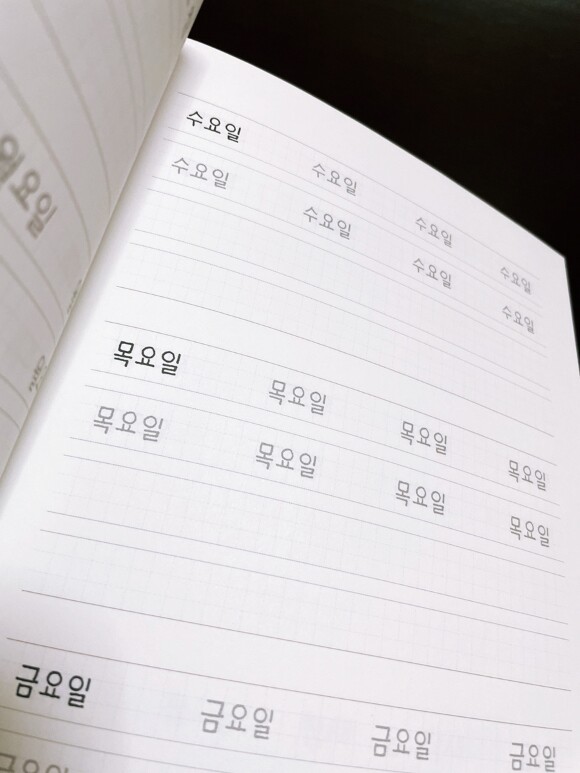 수요일 수요일 수요일 수요일
수요일 수요일 수요일 수요일
목요일 목요일 목요일 목요일
목요일 목요일 목요일 목요일
금요일 금요일 금요일 금요일
금요일